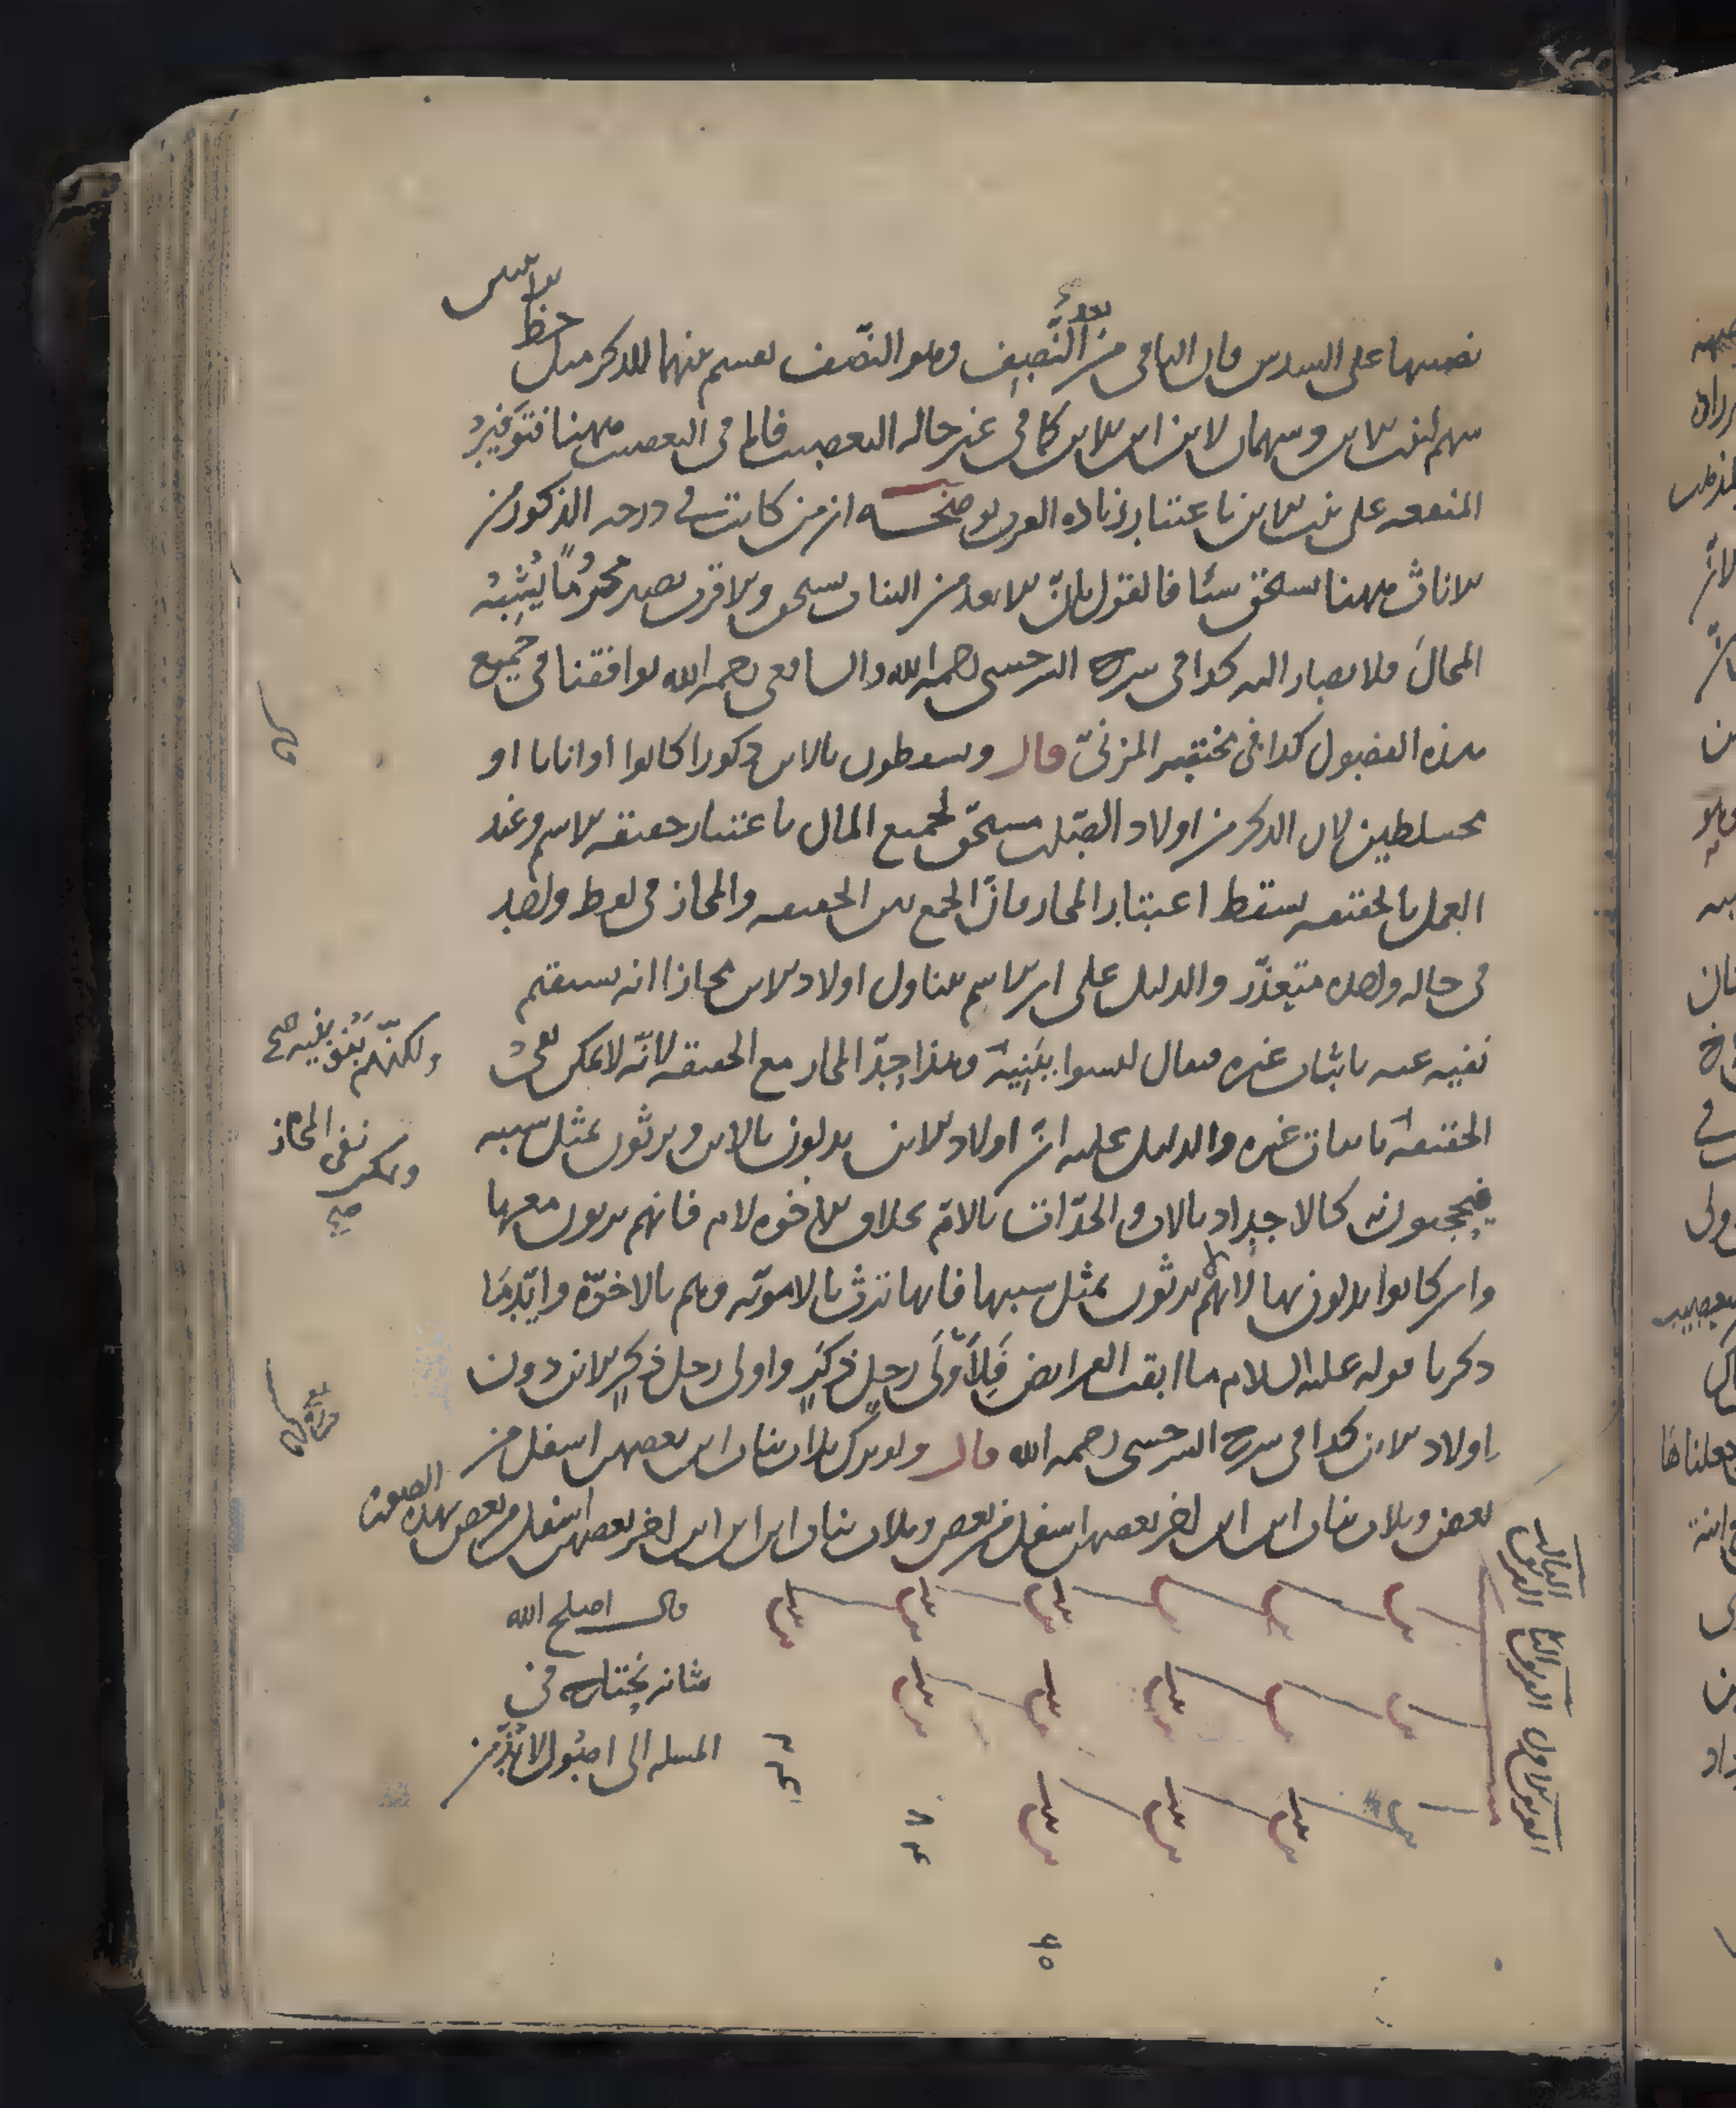 نصيبها على السدس فان الباقى من النصيف وهو النصف يقسم بينهما للذكر مثل حظ الانثيين
سهم لبنت الابن وسهمان لابن ابن الابن كما فى غير حاله التعصيب فاما فى التعصيب ههنا فتوفير
المنفعه على بنت الابن باعتبار زياده القرب يوضحه ان من كانت فى درجه الذكور من
الاناث ههنا يستحق شيئا فالقول بان الابعد من البنات يستحق والاقرب يصير محرومًا يُشبِهُ
المحالَ فلا يصار اليه كذا فى شرح السرخسى رحمه الله والشافعى رحمه الله يوافقنا فى جميع
هذه الفصول كذا فى مختصر المزنىّ قال ويسقطون بالابن ذكورا كانوا او اناثا او
مختلطين لان الذكر من اولاد الصلب مستحق لجميع المال باعتبار حقيقه الاسم وعند
العمل بالحقيقه يسقط اعتبار المجاز فانّ الجمع بين الحقيقه والمجاز فى لفظ واحد
فى حاله واحده متعذّر والدليل على ان الاسم يتناول اولاد الابن مجازا انه يستقيم
نفيه عنه باثبات غيره فيقال ليسوا ببنيه وهذا حدّ المجاز مع الحقيقه لانّه لا يمكن نفى
ولكنّهم بَنُو بنيه صح
الحقيقه باثبات غيره والدليل عليه انّ اولاد الابن يدلون بالابن ويرثون بمثل سببه
ويمكن نفى المجاز
صح
فيحجبون به كالاجداد بالاب والجدّات بالامّ بخلاف الاخوه لام فانهم يرثون معها
وان كانوا يدلون بها لانهم لا يرثون بمثل سببها فانها ترث بالامومّه وهم بالاخوّة وايّد ما
ذكرنا قوله عليه السلام ما ابقت الفرايض فَلِأَوْلَى رجلٍ ذكرٍ واولى رجل ذكرٍ الابن دون
اولاد الابن كذا فى شرح السرخسى رحمه الله قال ولو ترك ثلاث بنات ابن بعضهن اسفل من
بعض وثلاث بنات ابن ابن اخر بعضهن اسفل من بعض وثلاث بنات ابن ابن ابن اخر بعضهن اسفل من بعض بهذه الصورة
الفريق الاول
الفريق الثانى
الفريق الثالث
قال اصلح الله
شانه يحتاج فى
المسله الى اصول لا بدّ من